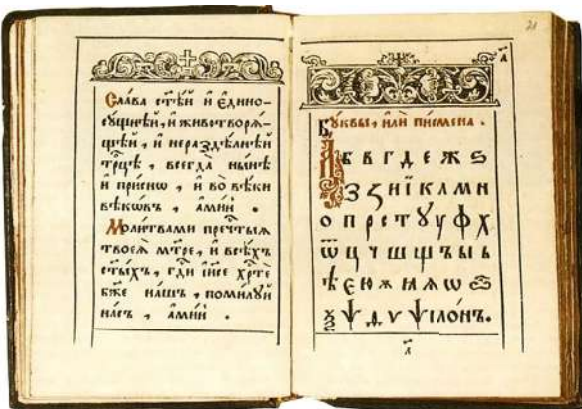 Слава ст҃ѣй и҆ є҆дино-
сꙋщнѣй, и҆ животворѧ-
щей, и҆ нераздѣлнѣй
трⷪ҇цѣ, всегда̀ ны́нѣ
и҆ при́снѡ, и҆ во вѣ́ки
вѣкѡ́въ, а҆ми́нь.
Моли́твами пречⷭ҇тыѧ
твоеѧ̀ мт҃ре, и҆ всѣ́хъ
ст҃ы́хъ, гдⷭ҇и і҆и҃се хрⷭ҇те
бж҃е на́шъ, поми́лꙋй
на́съ, а҆ми́нь.
Бꙋ́квы, и҆лѝ писмена̀.
А Б В Г Д Е Ж Ѕ
З Ꙁ И Ї К Л М Н
О П Р С Т Ꙋ У Ф Х
Ѿ Ц Ч Ш Щ Ъ Ы Ь
Ѣ Є Ю Ѫ Ѧ Ѡ
Ѯ Ѱ Ѵ ѱїло́нъ.